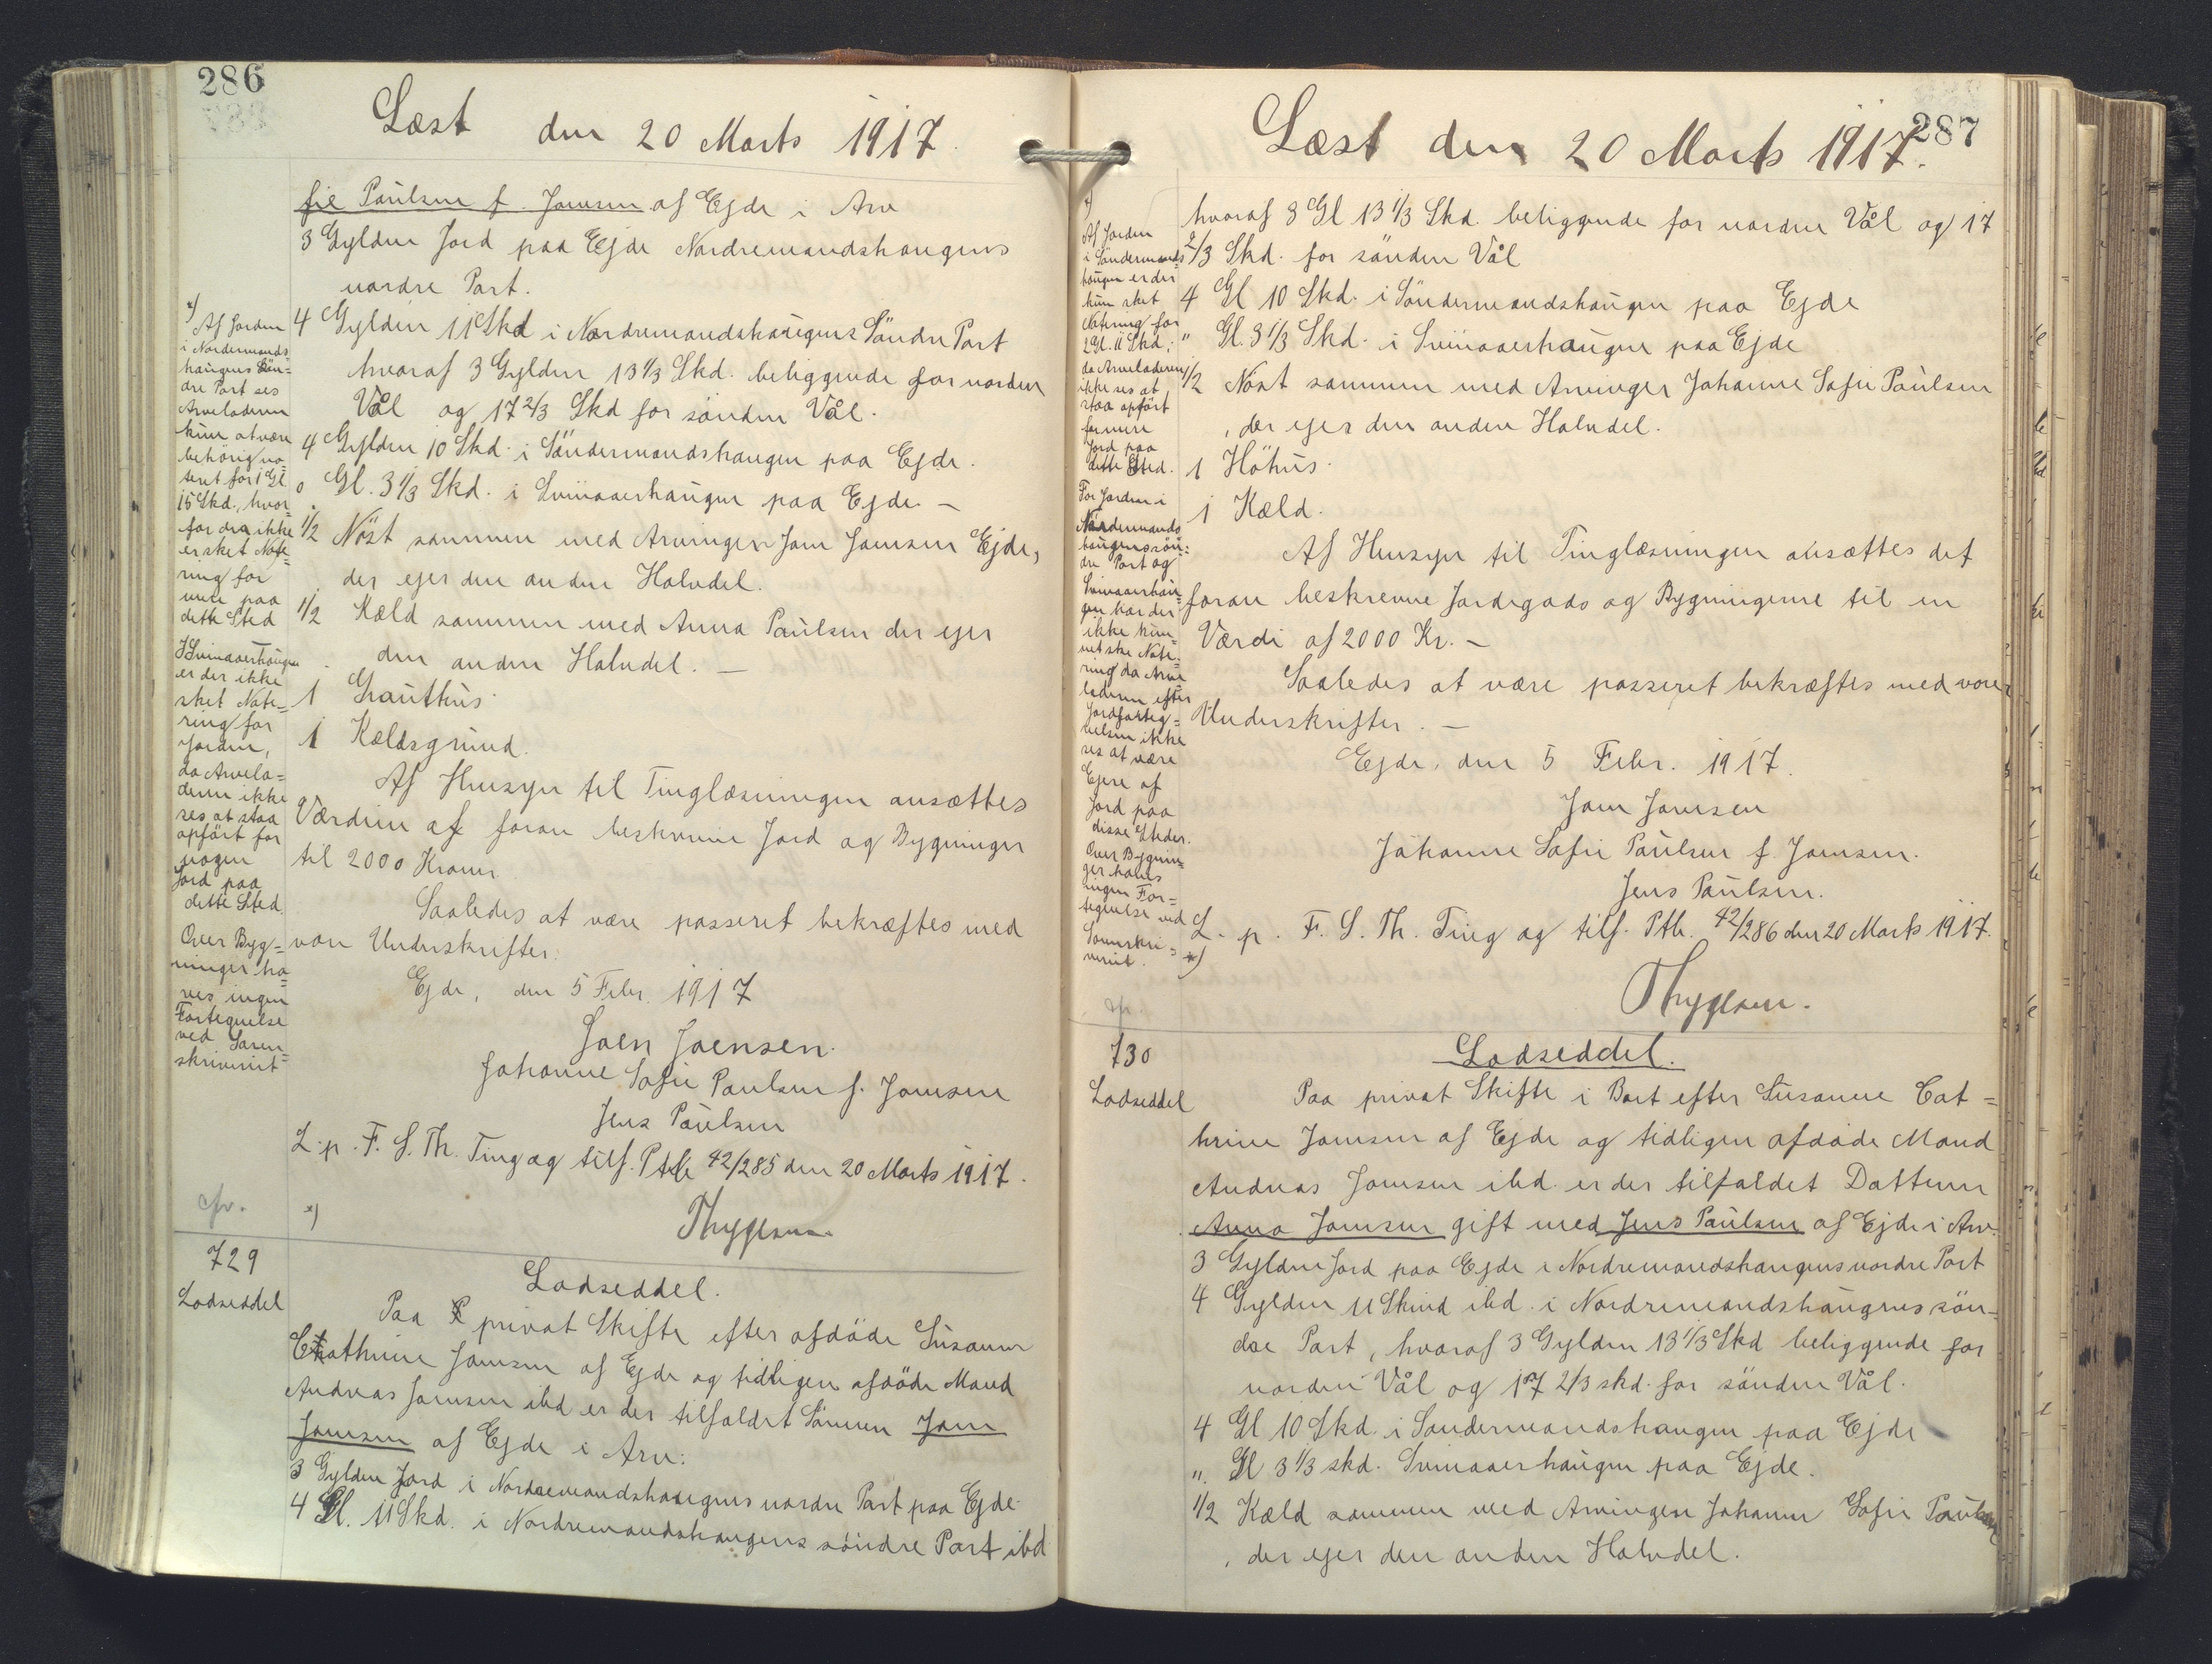 286
Læst den 20 Marts 1917.
fie Paulsen f. Joensen af Ejde i Arv
3 Gylden Jord paa Ejde Nordremandshaugens
nordre Part.
4 Gylden 11 Skd i Nordremandshaugens Söndre Part
hvoraf 3 Gylden 13 1/3 Skd. beliggende for norden
Vål og 17 2/3 Skd for sönden Vål.
4 Gylden 10 Skd. i Söndermandshaugen paa Ejde.
0 Gl. 3 1/3 Skd. i Svinaaerhaugen paa Ejde. –
1/2 Nöst sammen med Arvingen Joen Joensen Ejde,
der ejer den anden Halvdel.
1/2 Kæld sammen med Anna Paulsen der ejer
den anden Halvdel. –
1 Grauthus
1 Kældsgrund.
Af Hensyn til Tinglæsningen ansættes
Værdien af foran beskrevne Jord og Bygninger
til 2000 Kroner.
Saaledes at være passeret bekræftes med
vore Underskrifter:
Ejde, den 5 Febr. 1917
Joen Joensen.
Johanne Sofie Paulsen f. Joensen
Jens Paulsen
L. p. F. S. Th. Ting og tilf. Ptb 42/285 den 20 Marts 1917.
*)
Thygesen.
*)
Af Jorden
i Nordremands-
haugens Sön=
dre Part ses
Arveladeren
kun at være
behörig no=
teret for 1 Gl
15 Skd., hvor=
for der ikke
er sket Note=
ring for
mere paa
dette Sted
I Svinaaerhaugen
er der ikke
sket Note=
ring for
Jorden,
da Arvela=
deren ikke
ses at staa
opfört for
nogen
Jord paa
dette Sted.
Over Byg=
ninger ha=
ves ingen
Fortegnelse
ved Soren=
skriveriet
cfr.
729
Lodseddel
Lodseddel.
Paa privat Skifte efter afdöde Susanne
Cathrine Joensen af Ejde og tidligen afdöde Mand
Andreas Joensen ibd er der tilfaldet Sönnen Joen
Joensen af Ejde i Arv:
3 Gylden Jord i Nordremandshaugens nordre Part paa Ejde
4 Gl. 11 Skd. i Nordremandshaugens söndre Part ibd
287
Læst den 20 Marts 1917.
hvoraf 3 Gl 13 1/3 Skd. beliggende for norden Vål og 17
2/3 Skd. for sönden Vål
4 Gl 10 Skd. i Söndermandshaugen paa Ejde
" Gl. 3 1/3 Skd. i Svinaaerhaugen paa Ejde
1/2 Nöst sammen med Arvinger Johanne Sofie Paulsen
, der ejer den anden Halvdel.
1 Höhus.
1 Kæld.
Af Hensyn til Tinglæsningen ansættes det
foran beskrevne Jordegods og Bygningerne til en
Værdi af 2000 Kr. –
Saaledes at være passeret bekræftes med vore
Underskrifter. –
Ejde, den 5 Febr. 1917.
Joen Joensen
Johanne Sofie Paulsen f. Joensen.
Jens Paulsen.
L. p. F. S. Th. Ting og tilf. Ptb. 42/286 den 20 Marts 1917.
*)
Thygesen.
*)
Af Jorden
i Söndermands-
haugen er der
kun sket
Notering for
2 Gl. 11 Skd;
da Arveladeren
ikke ses at
staa opfört
for mere
Jord paa
dette Sted.
For Jorden i
Nordremands
haugens sön=
dre Part og
Svinaaerhau=
gen har der
ikke kun=
net ske Note=
ring da Arve
laderen efter
Jordforteg=
nelsen ikke
ses at være
Ejere af
Jord paa
disse Steder.
Over Bygnin=
ger haves
ingen For=
tegnelse ved
Sorenskri=
veriet.
730
Lodseddel
Lodseddel.
Paa privat Skifte i Boet efter Susanne Cat=
hrine Joensen af Ejde og tidligen afdöde Mand
Andreas Joensen ibd. er der tilfaldet Datteren
Anna Joensen gift med Jens Paulsen af Ejde i Arv.
3 Gylden Jord paa Ejde i Nordremandshaugens nordre Part
4 Gylden 11 Skind ibd. i Nordremandshaugens sön=
dre Part, hvoraf 3 Gylden 13 1/3 Skd beliggende for
norden Vål og 17 2/3 skd. for sönden Vål.
4 Gl 10 Skd. i Söndermandshaugen paa Ejde
". Gl 3 1/3 skd. Svinaaerhaugen paa Ejde.
1/2 Kæld sammen med Arvingen Johanne Sofie Paulsen
, der ejer den anden Halvdel.